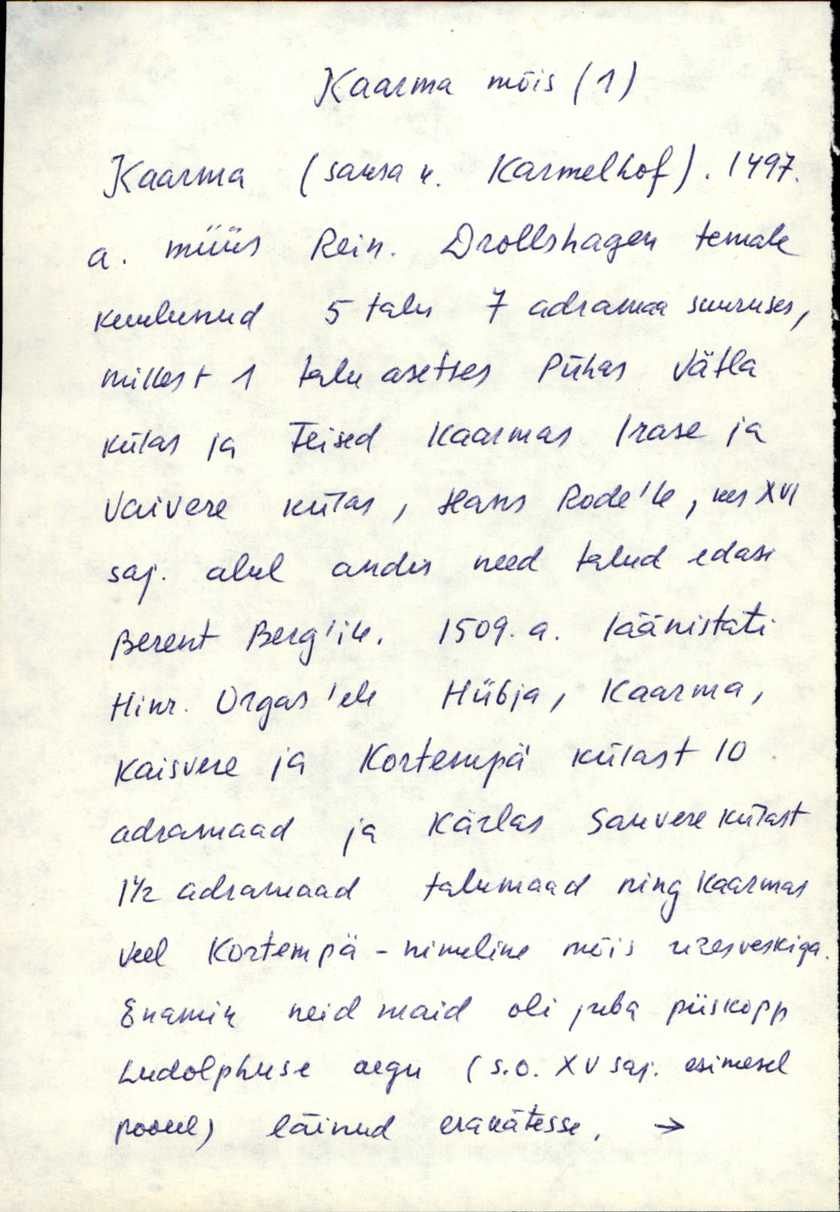 Kaarma mõis (1)
Kaarma (saksa k. Karmelhof). 1497.
a. müüs Rein. Drollshagen temale
kuulunud 5 talu 7 adramaa suuruses,
millest 1 talu asetses Pühas Vätla
külas ja teised Kaarmas Irase ja
Vaivere külas, Hans Rode'le, kes XVI
saj. alul andis need talud edasi
Berent Berg'ile. 1509. a. läänistati
Hinr. Orgas'ele Hübja, Kaarma,
Kaisvere ja Kortempä külast 10
adramaad ja Kärlas Sauvere külast
1½ adramaad talumaad ning Kaarmas
veel Kortempä-nimeline mõis vesveskiga.
Enamik neid maid oli juba piiskopp
Ludolphuse aegu (s.o. XV saj. esimesel
poolel) läinud erakätesse. →